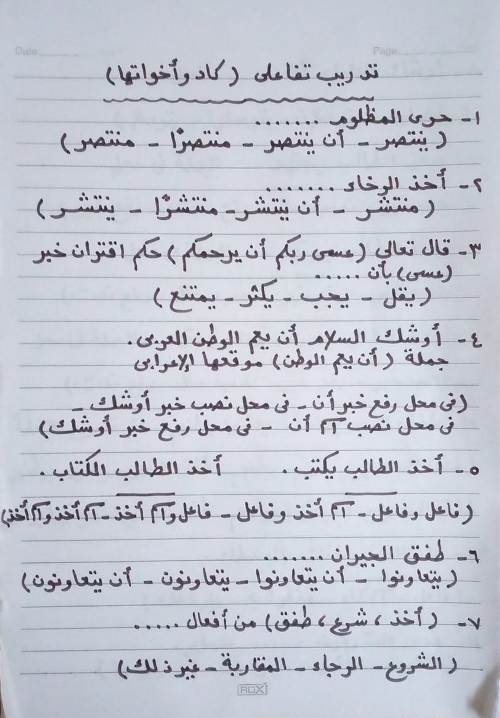 Date Page
تدريب تفاعلى (كاد وأخواتها)
١- حرى المظلوم .......
(ينتصر - أن ينتصر - منتصرًا - منتصر)
٢- أخذ الرخاء .......
(منتشر - أن ينتشر - منتشرًا - ينتشر)
٣- قال تعالى (عسى ربكم أن يرحمكم) حكم اقتران خبر
(عسى) بأن .....
(يقل - يجب - يكثر - يمتنع)
٤- أوشك السلام أن يعم الوطن العربى.
جملة (أن يعم الوطن) موقعها الإعرابى
(فى محل رفع خبر أن - فى محل نصب خبر أوشك -
فى محل نصب اسم أن - فى محل رفع خبر أوشك)
٥- أخذ الطالب يكتب. أخذ الطالب الكتاب.
(فاعل وفاعل - اسم أخذ وفاعل - فاعل واسم أخذ - اسم أخذ واسم أخذ)
٦- طفق الجيران .......
(يتعاونوا - أن يتعاونوا - يتعاونون - أن يتعاونون)
٧- (أخذ، شرع، طفق) من أفعال .....
(الشروع - الرجاء - المقاربة - غير ذلك)
ROX